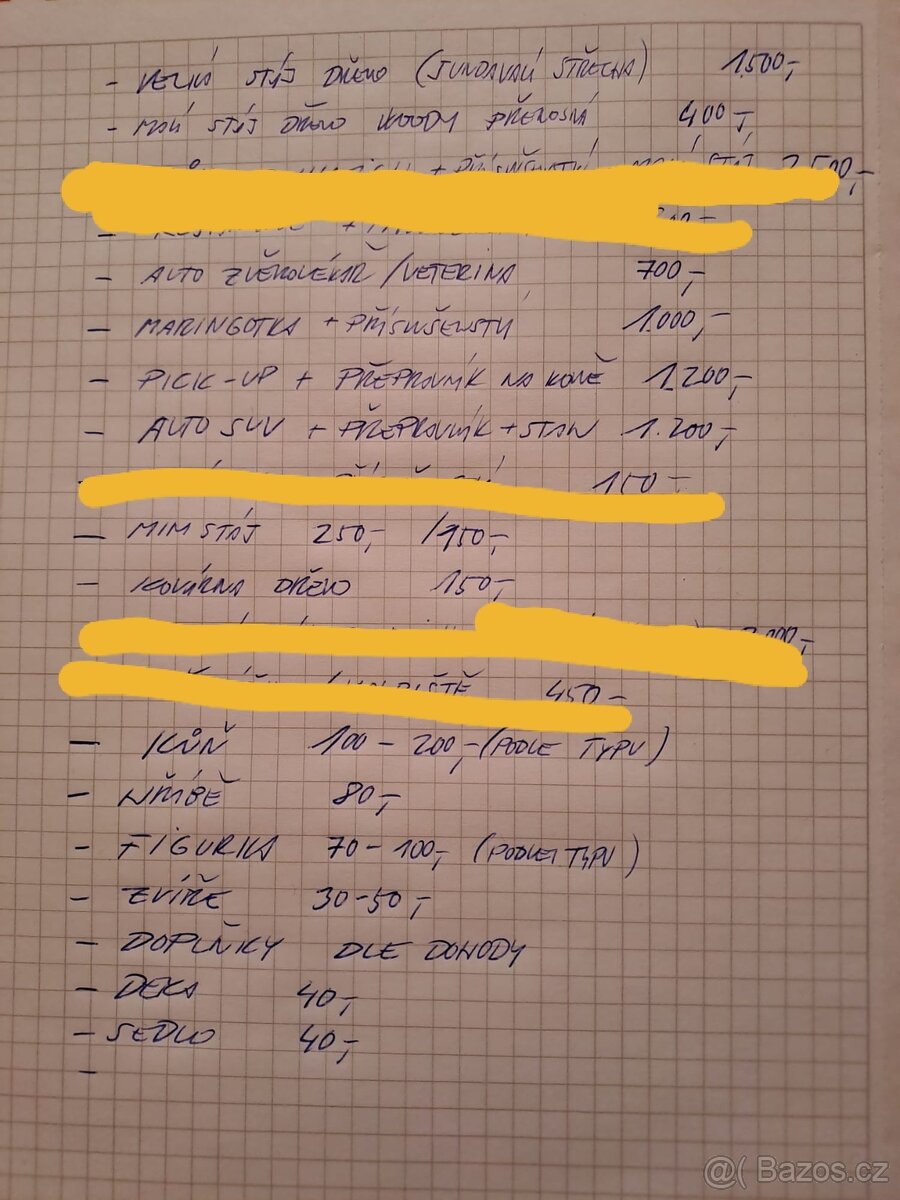 - VELKÁ STÁJ DŘEVO (SUNDAVACÍ STŘECHA) 1500,-
- MALÁ STÁJ DŘEVO WOODY PŘENOSNÁ 400,-
+ PŘÍSLUŠENSTVÍ MALÁ STÁJ 2.500,-
- AUTO ZVĚROLÉKAŘ/VETERINA 700,-
- MARINGOTKA + PŘÍSLUŠENSTVÍ 1.000,-
- PICK-UP + PŘEPRAVNÍK NA KONĚ 1.200,-
- AUTO SUV + PŘEPRAVNÍK + STAN 1.200,-
150,-
- MINI STÁJ 250,- /950,-
- KOVÁRNA DŘEVO 150,-
450,-
- KŮŇ 100-200,- (PODLE TYPU)
- HŘÍBĚ 80,-
- FIGURKA 70-100,- (PODLE TYPU)
- ZVÍŘE 30-50,-
- DOPLŇKY DLE DOHODY
- DEKA 40,-
- SEDLO 40,-
-
@( Bazos.cz